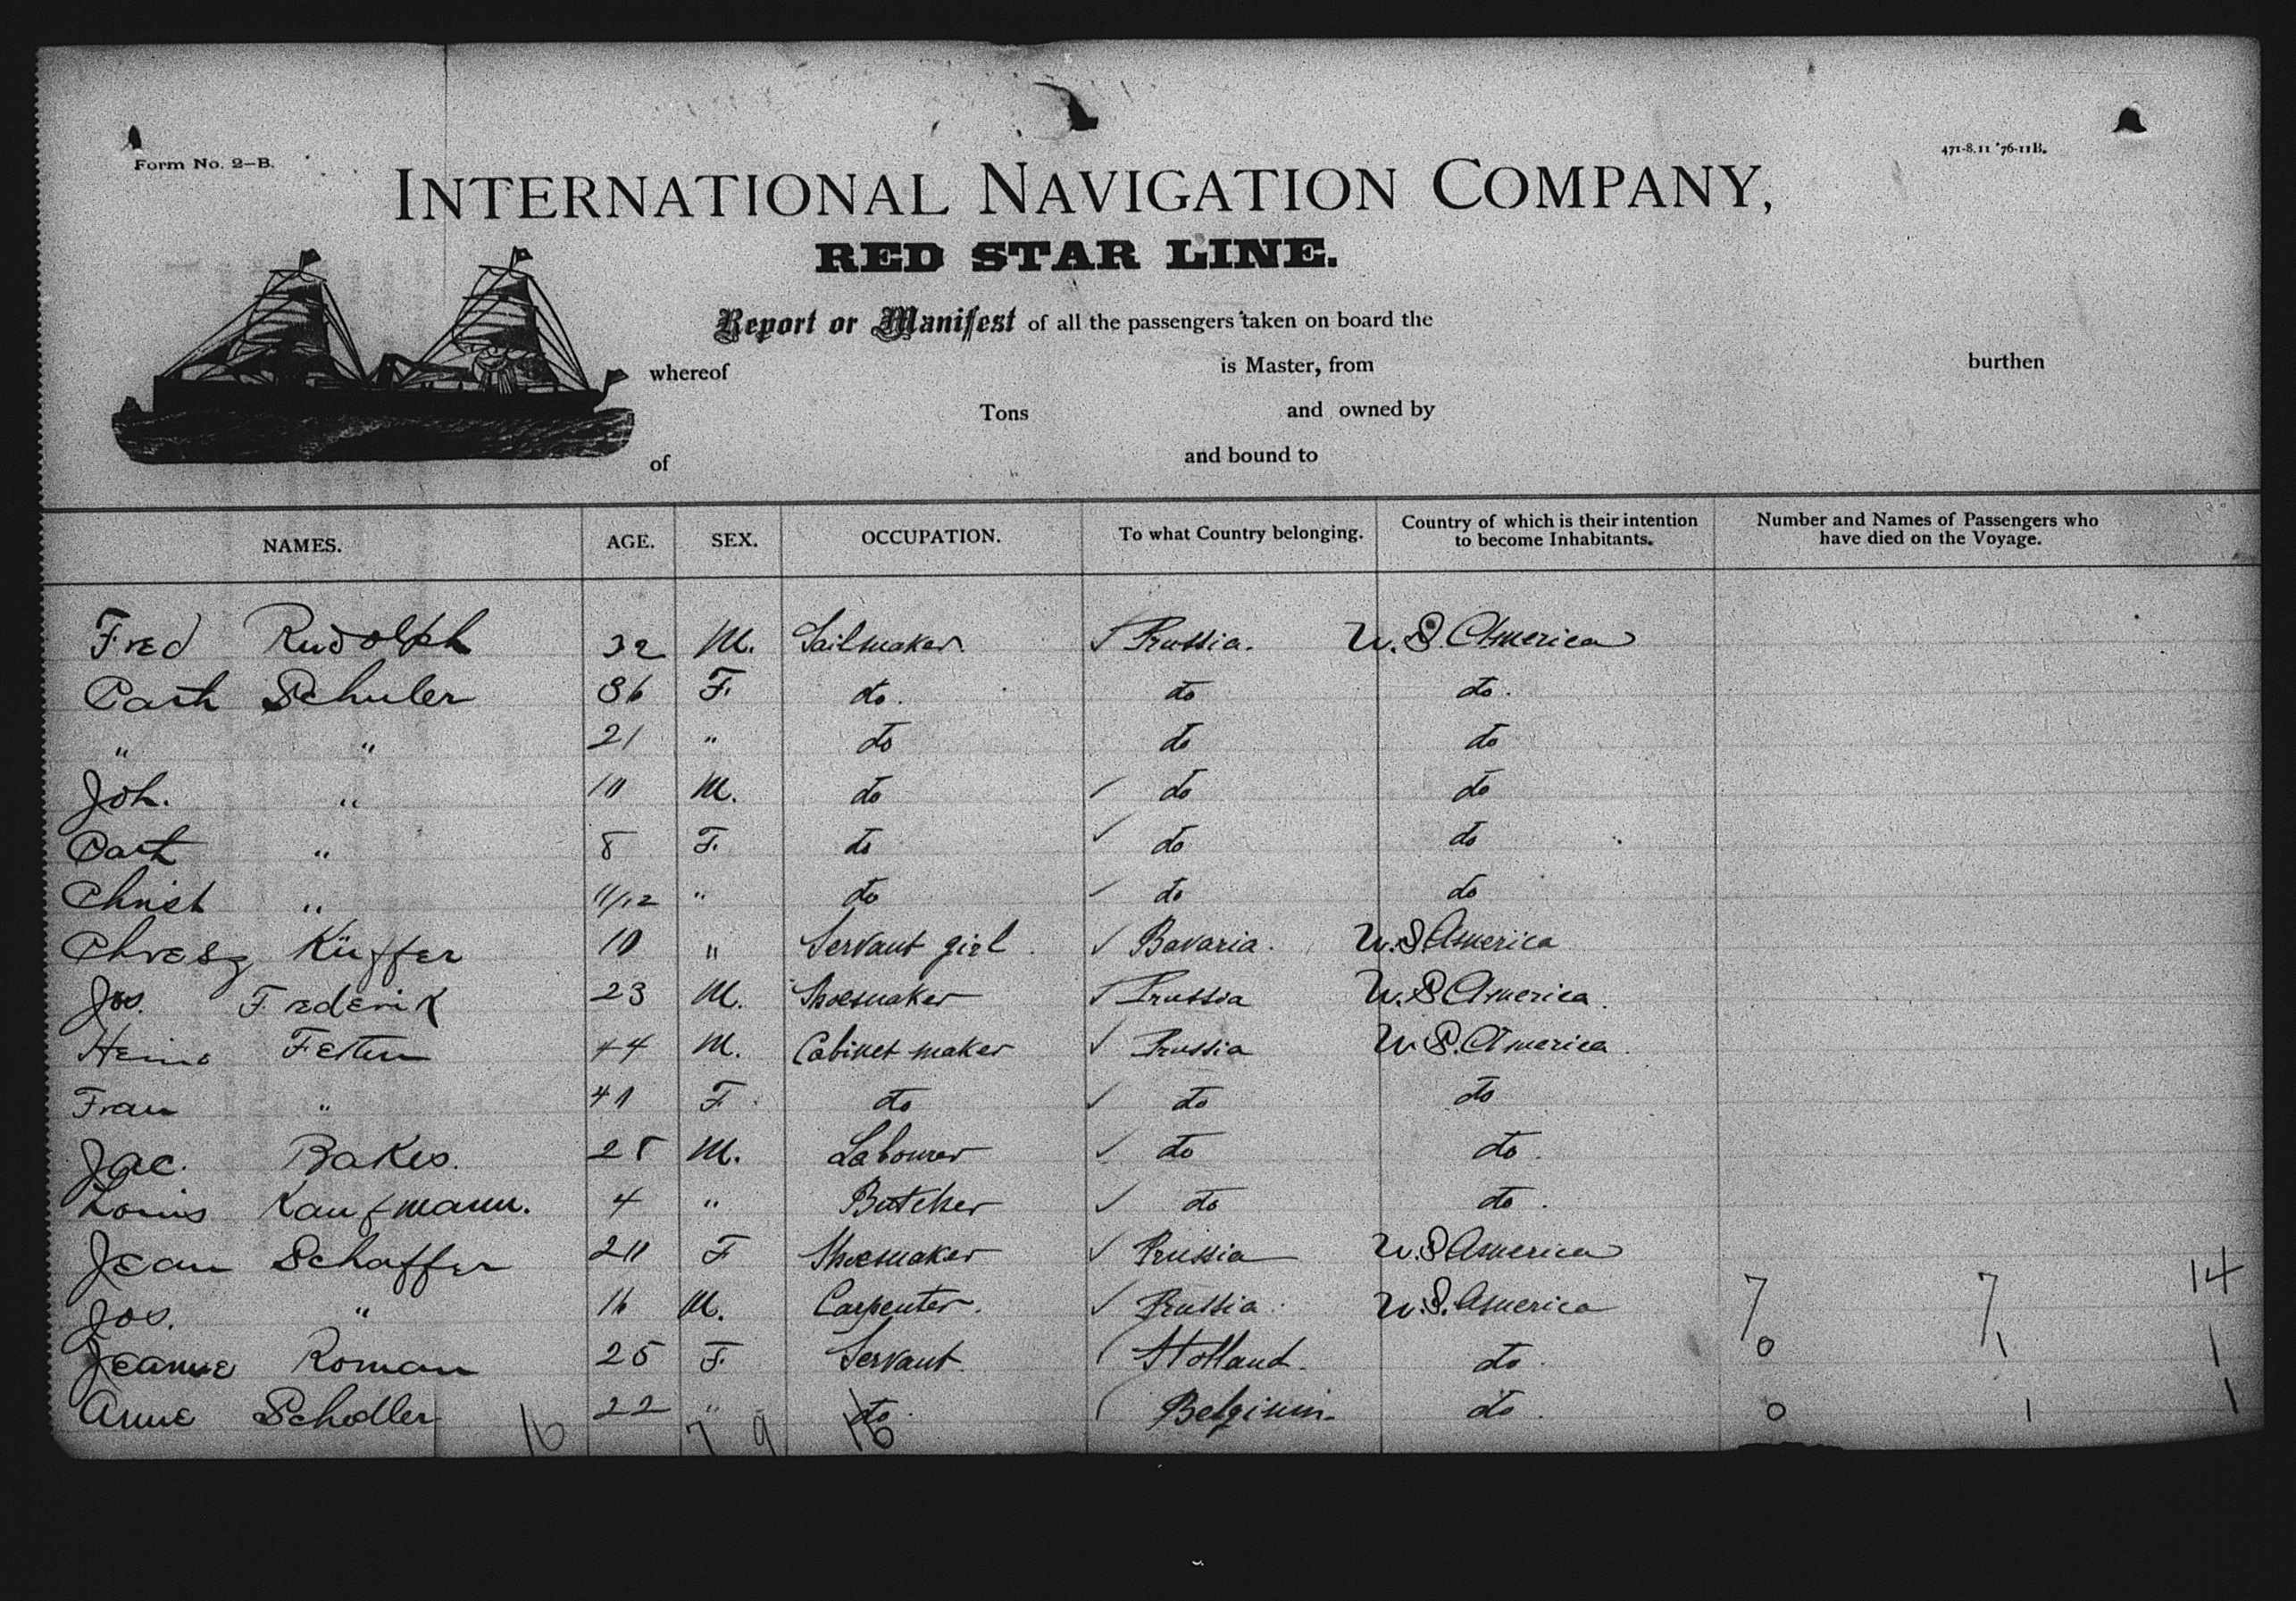 Form No. 2-B.
471-8.11 '76-11B.
INTERNATIONAL NAVIGATION COMPANY,
RED STAR LINE.
Report or Manifest of all the passengers taken on board the
whereof is Master, from burthen
Tons and owned by
of and bound to
NAMES. AGE. SEX. OCCUPATION. To what Country belonging. Country of which is their intention to become Inhabitants. Number and Names of Passengers who have died on the Voyage.
Fred Rudolph 32 M. Sailmaker. ✓ Prussia. U. S. America
Cath Schuler 36 F. do. do do.
" " 21 " do do do
Joh. " 10 M. do ✓ do do
Cath " 8 F. do ✓ do do
Christ " 11/12 " do ✓ do do
Küffer 10 " Servant girl ✓ Bavaria. U. S America
Jos. Frederik 23 M. Shoemaker ✓ Prussia U. S America.
44 M. Cabinet maker ✓ Prussia U. S. America.
Frau " 41 F. do ✓ do do
Jac. Bakes. 28 M. Labourer ✓ do do.
Louis Kaufmann. 4 " Butcher ✓ do do.
Jean Schaffer 20 F Shoemaker ✓ Prussia U. S America
Jos. " 16 M. Carpenter. ✓ Prussia. U. S. America 7 7 14
Jeanne Roman 25 F. Servant. Holland. do. 0 1 1
Anne Schodler 22 " do. Belgium. do. 0 1 1
16 7 9 16